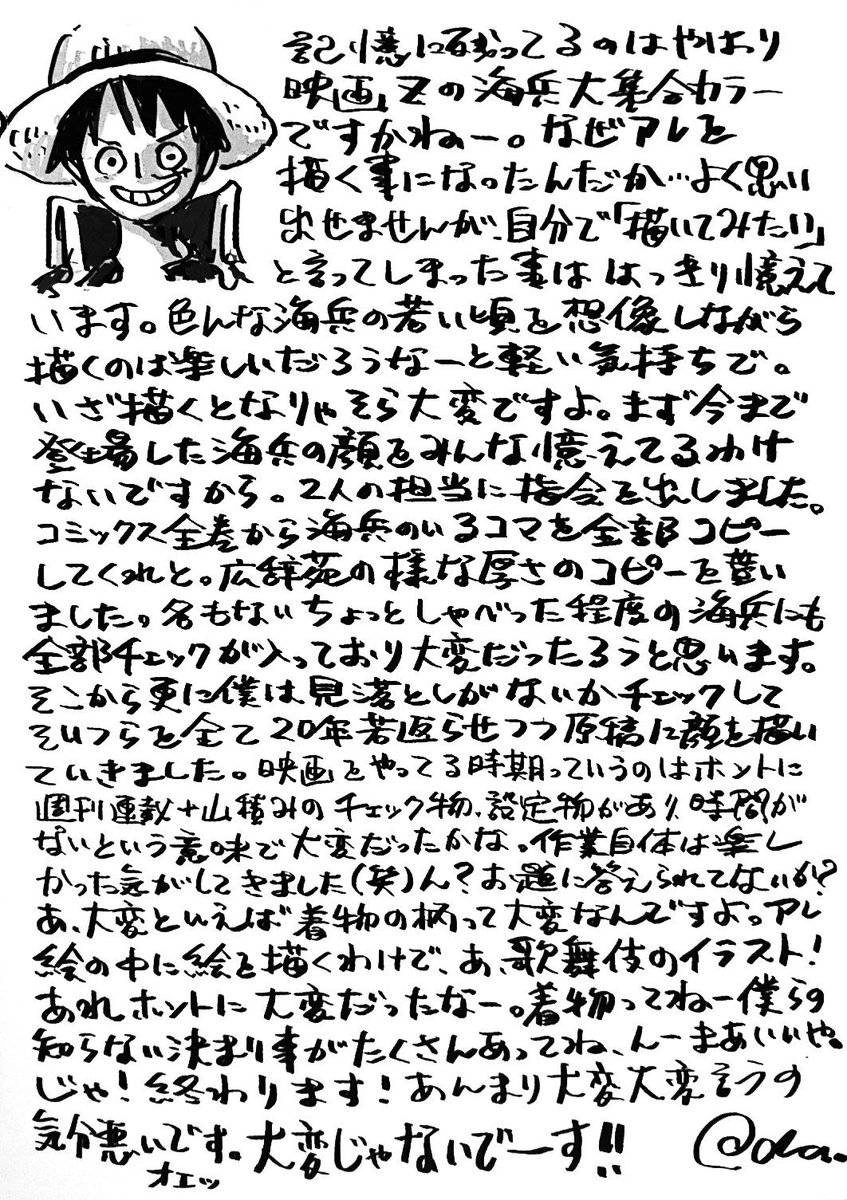 記憶に残ってるのはやはり
映画Zの海兵大集合カラー
ですかねー。なぜアレを
描く事になったんだか…よく思い
出せませんが、自分で「描いてみたい」
と言ってしまった事ははっきり憶えて
います。色んな海兵の若い頃を想像しながら
描くのは楽しいだろうなーと軽い気持ちで。
いざ描くとなりゃそら大変ですよ。まず今まで
登場した海兵の顔をみんな憶えてるわけ
ないですから。2人の担当に指令を出しました。
コミックス全巻から海兵のいるコマを全部コピー
してくれと。広辞苑の様な厚さのコピーを貰い
ました。名もないちょっとしゃべった程度の海兵にも
全部チェックが入っており大変だったろうと思います。
そこから更に僕は見落としがないかチェックして
そいつらを全て20年若返らせつつ原稿に顔を描い
ていきました。映画をやってる時期っていうのはホントに
週刊連載+山積みのチェック物、設定物があり、時間が
ないという意味で大変だったかな。作業自体は楽し
かった気がしてきました(笑)ん?お題に答えられてないか?
あ、大変といえば着物の柄って大変なんですよっアレ
絵の中に絵を描くわけで、あ、歌舞伎のイラスト!
あれホントに大変だったなー。着物ってねー僕らの
知らない決まり事がたくさんあってね、んーまあいいや。
じゃ!終わります!あんまり大変大変言うの
気分悪いです。大変じゃないでーす!!
オエッ